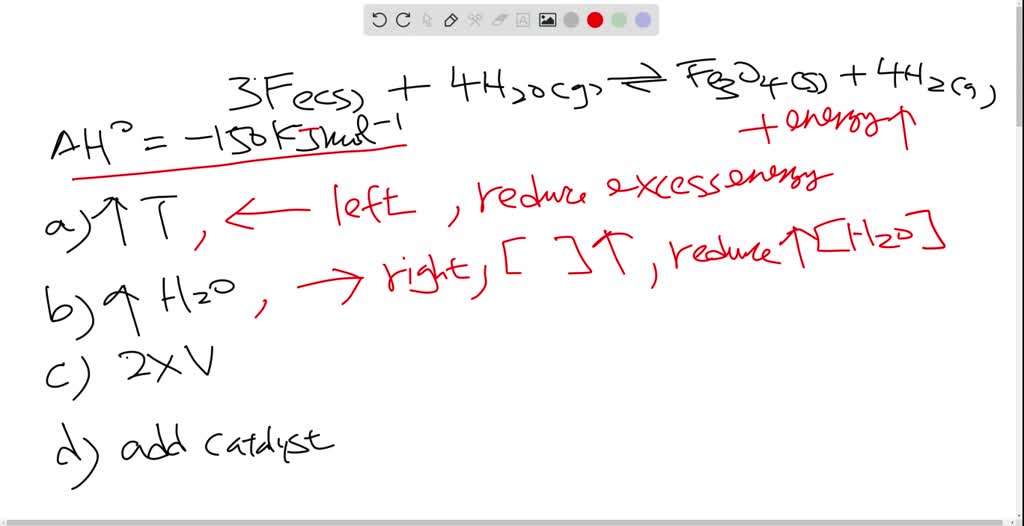 3Fe(s) + 4H2O(g) ⇌ Fe3O4(s) + 4H2(g)
+ energy↑
ΔH° = -150KJmol-1
a) ↑ T, ← left, reduce excess energy
b) ↑ H2O, → right, [ ]↑, reduce ↑[H2O]
c) 2xV
d) add catalyst